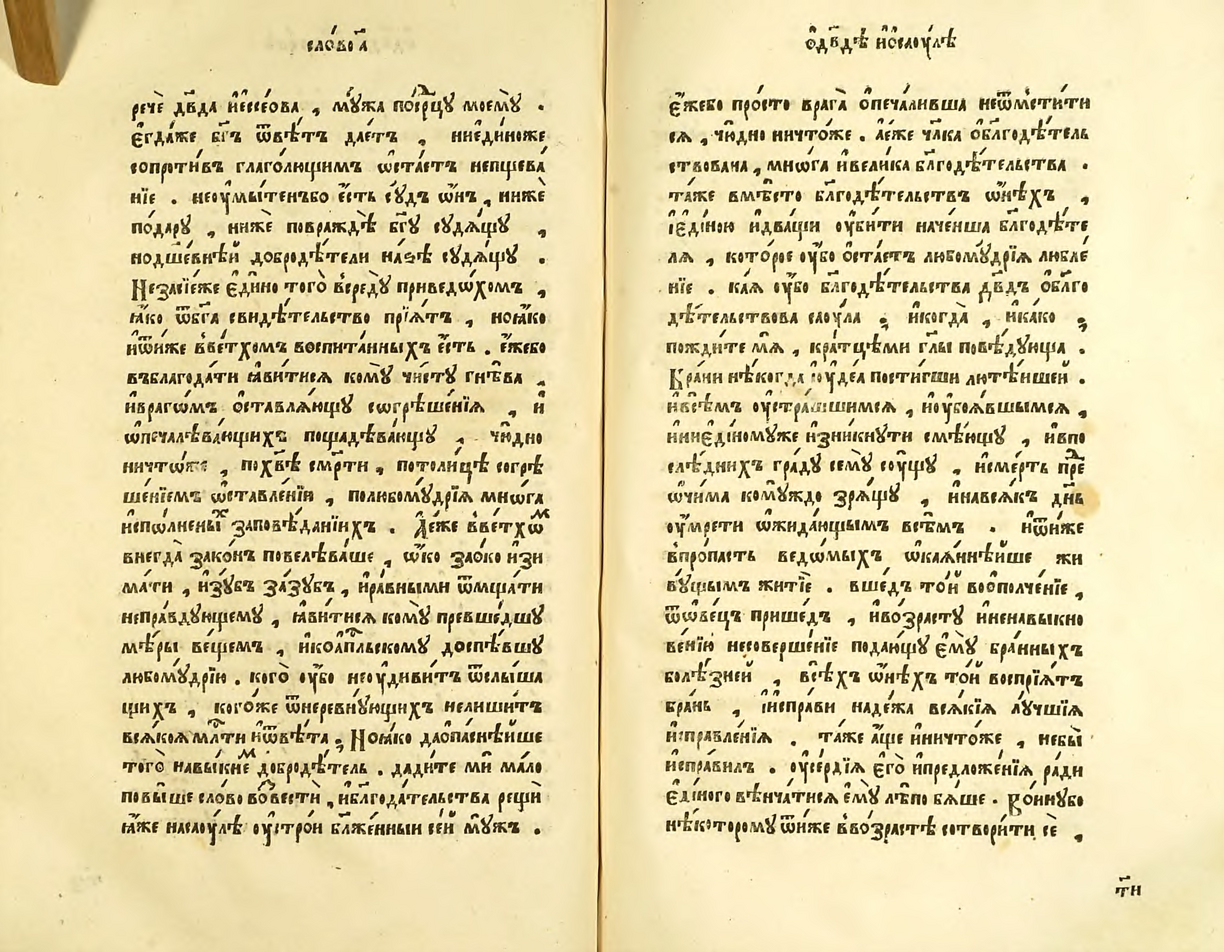 сло́во а҃
речѐ дв҃да і҆ессеова , мꙋ́жа посрⷣцꙋ моемꙋ̀ .
є҆гда́же бг҃ъ ѿвѣ́тъ дае́тъ , ниеди́ноже
сопроти́въ глаго́лющимъ ѡ҆стае́тъ непщева́
нїе . неоу҆мы́тенъбо є҆́сть сꙋ́дъ ѡ҆́нъ , нижѐ
пода́рꙋ , нижѐ повражде́ бг҃ꙋ сꙋдѧ́щꙋ ,
нодш҃евнѣй добродѣ́тели на́съ сꙋдѧ́щꙋ .
Незасїеже є҆ди́но того̀ всредꙋ̀ приведо́хомъ ,
ꙗ҆́ко ѿбг҃а свидѣ́тельство прїѧ́тъ , ноꙗ҆́ко
иѿни́же вве́тхомъ воспита́нныхъ є҆́сть . є҆́жебо
въблагода́ти ꙗ҆ви́тисѧ комꙋ̀ чи́стꙋ гнѣ́ва ,
ивраго́мъ ѡ҆ставлѧ́ющꙋ согрѣше́нїѧ , и҆
ѡ҆печалѣва́ющихъ пощадѣва́ющꙋ , чю́дно
ничто́же , похвѣ̀ сме́рти , потоли́цѣ согрѣ
ше́нїемъ ѡ҆ставле́нїи , полюбомꙋ́дрїѧ мно́га
испо́лнены заповѣ́данїихъ . А҆е́же вве́тхомⷨ
внегда̀ зако́нъ повелѣва́ше , ѡ҆́ко зао҆́ко и҆зи
ма́ти , и҆зꙋ́бъ зазꙋ́бъ , ира́вными ѿмща́ти
непра́вдꙋющемꙋ , ꙗ҆ви́тисѧ комꙋ̀ превше́дшꙋ
мѣ́ры ве́щемъ , икоа҆пⷭ҇льскомꙋ доспѣ́вшꙋ
любомꙋ́дрїю . кого̀ оу҆́бо неоу҆диви́тъ ѿслы́ша
щихъ , кого́же ѿнеревнꙋ́ющихъ нелиши́тъ
всѧ́коѧ млⷭ҇ти иѿвѣ́та , Ноꙗ҆́ко даѡ҆па́снѣйше
того̀ навы́кнемⷨ добродѣ́тель . дади́те мѝ ма́ло
повы́ше сло́во возвестѝ , иблагода́тельства рещѝ
ꙗ҆́же насаꙋ́лѣ оу҆стро́и бл҃же́нныи се́й мꙋ́жъ .
ѡ҆дв҃дѣ и҆ѡ҆саоу́лѣ
є҆́жебо про́сто врага̀ ѡ҆печа́лившa неѿмсти́ти
сѧ , чю́дно ничто́же . а҆е́же чл҃ка ѡ҆блгⷣодѣ́тель
ствована , мно́га ивели́ка блгⷣодѣ́тельства .
та́же вмѣ́сто блгⷣодѣ́тельствъ ѡ҆нѣ́хъ ,
і҆є҆ди́ною и҆два́щи оу҆би́ти наче́нша блгⷣодѣ́те
лѧ , кото́рое оу҆́бо ѡ҆стае́тъ любомꙋ́дрїѧ любле́
нїе . ка́ѧ оу҆́бо блгⷣодѣ́тельства дв҃дъ ѡ҆благо
дѣ́тельствова саоу́ла ; и҆когда̀ , и҆ка́ко ;
пожди́те мѧ̀ , кра́тцѣми гл҃ы повѣ́дꙋюща .
Бра́ни нѣ́когда і҆оу҆де́а пости́гши лютѣ́ишей .
ивсѣ́мъ оу҆страши́шимсѧ , ноубоѧ́вшымсѧ ,
иниє҆ди́номꙋже и҆зни́кнꙋти смѣ́ющꙋ , и҆впо
слѣ́днихъ гра́дꙋ семꙋ̀ сꙋ́щꙋ , исме́рть преⷣ
ѡ҆чи́ма комꙋ́ждо зрѧ́щꙋ , инавсѧ́къ дн҃ь
оу҆мре́ти ѡ҆жида́ющымъ всѣ́мъ . и҆ѿни́же
впро́пасть ведо́мыхъ ѡ҆каѧ́ннѣйше жи
вꙋ́щымъ житїѐ . вше́дъ то́й воѡполче́нїе ,
ѿове́цъ прише́дъ , ивозрастꙋ иненавыкно
ве́нїю несоверше́нїе подаю́щꙋ є҆мꙋ̀ бра́нныхъ
болѣ́зней , всѣ́хъ ѡ҆нѣ́хъ то́й воспрїѧ́тъ
бра́нь , и҆испра́ви наде́жа всѧ́кїѧ лꙋ́чшїѧ
исправле́нїѧ . та́же а҆́ще иничто́же , небы̀
испра́вилъ . оу҆се́рдїѧ є҆гѡ̀ ипредложе́нїѧ ра́ди
є҆ди́ного вѣнча́тисѧ є҆мꙋ̀ лѣ́по бѧ́ше . Во́инꙋбо
нѣ́которомꙋ ѿни́же ввозрастѣ сотвори́ти сѐ ,
т҃и